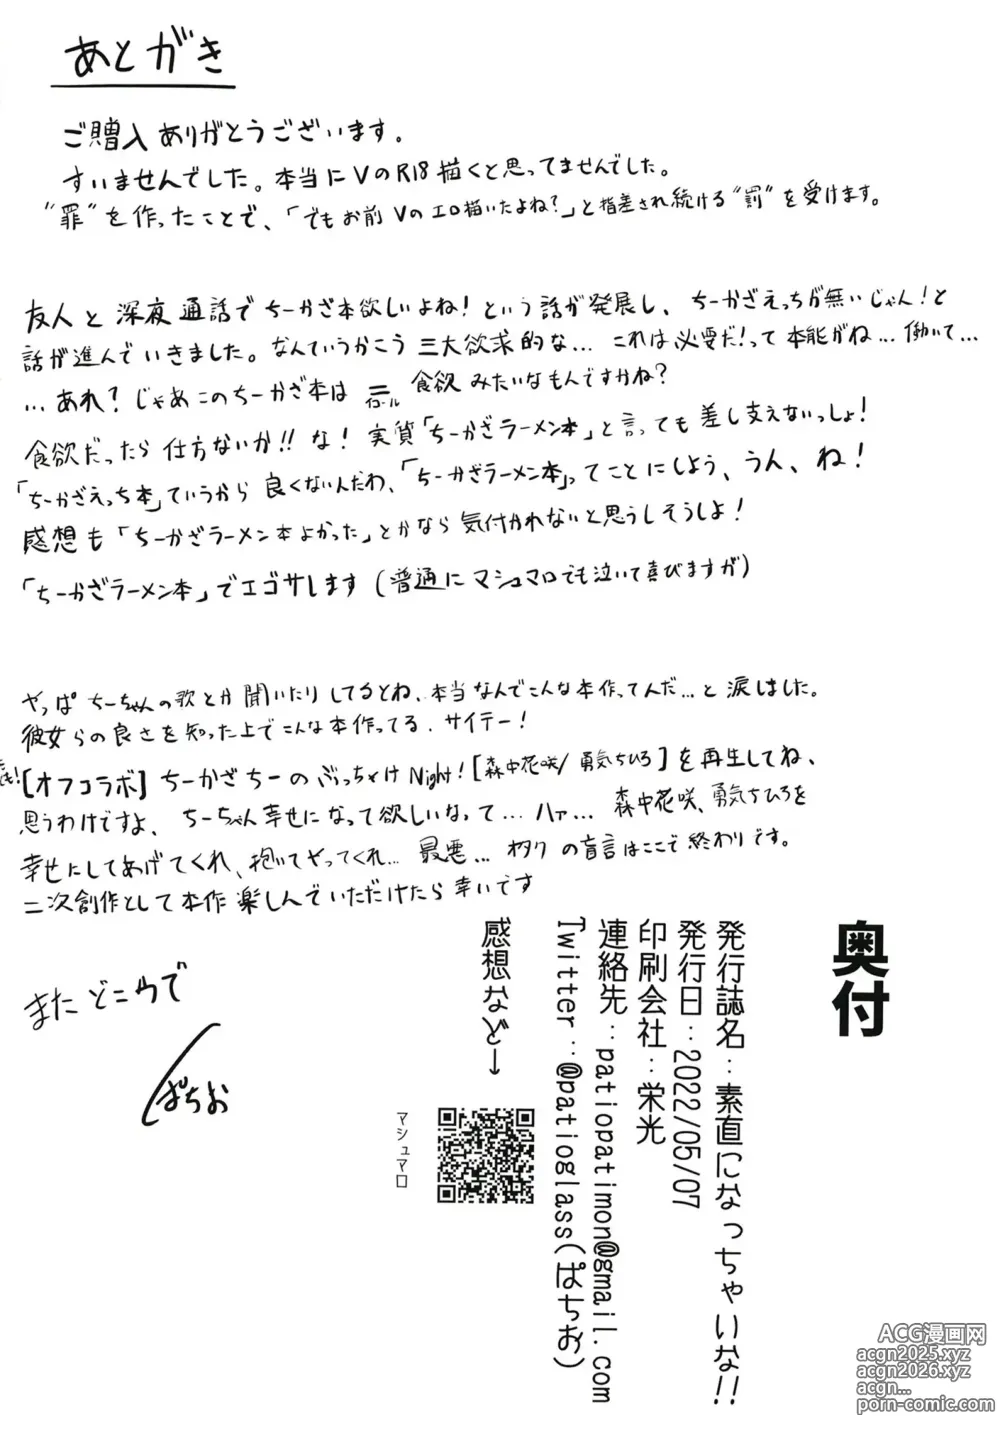 あとがき
ご贈入ありがとうございます。
すいませんでした。本当にVのR18描くと思ってませんでした。
“罪”を作ったことで、「でもお前Vのエロ描いたよね?」と指差され続ける“罰”を受けます。
友人と深夜通話でちーかざ本欲しいよね!という話が発展し、ちーかざえっちが無いじゃん!と
話が進んでいきました。なんていうかこう三大欲求的な…これは必要だ!って本能がね…働いて…
…あれ?じゃあこのちーかざ本は=イコール食欲みたいなもんですかね?
食欲だったら仕方ないか!!な!実質「ちーかざラーメン本」と言っても差し支えないっしょ!
「ちーかざえっち本」ていうから良くないんだわ、「ちーかざラーメン本」ってことにしよう、うん、ね!
感想も「ちーかざラーメン本よかった」とかなら気付かれないと思うしそうしよ!
「ちーかざラーメン本」でエゴサします(普通にマシュマロでも泣いて喜びますが)
やっぱちーちゃんの歌とか聞いたりしてるとね、本当なんでこんな本作ってんだ…と涙しました。
彼女らの良さを知った上でこんな本作ってる.サイテー!
[オフコラボ]ちーかざちーのぶっちゃけNight![森中花咲/勇気ちひろ]を再生してね、
思うわけですよ、ちーちゃん幸せになって欲しいなって…ハァ…森中花咲、勇気ちひろを
幸せにしてあげてくれ、抱いてやってくれ…最悪…オタクの盲言はここで終わりです。
二次創作として本作楽しんでいただけたら幸いです
またどこかで
ぱちお
奥付
発行誌名:素直になっちゃいな!!
発行日:2022/05/07
印刷会社:栄光
連絡先:patiopatimon@gmail.com
Twitter:@patioglass(ぱちお)
感想など→
マシュマロ
ACG漫画网
acgn2025.xyz
acgn2026.xyz
acgn...
porn-comic.com